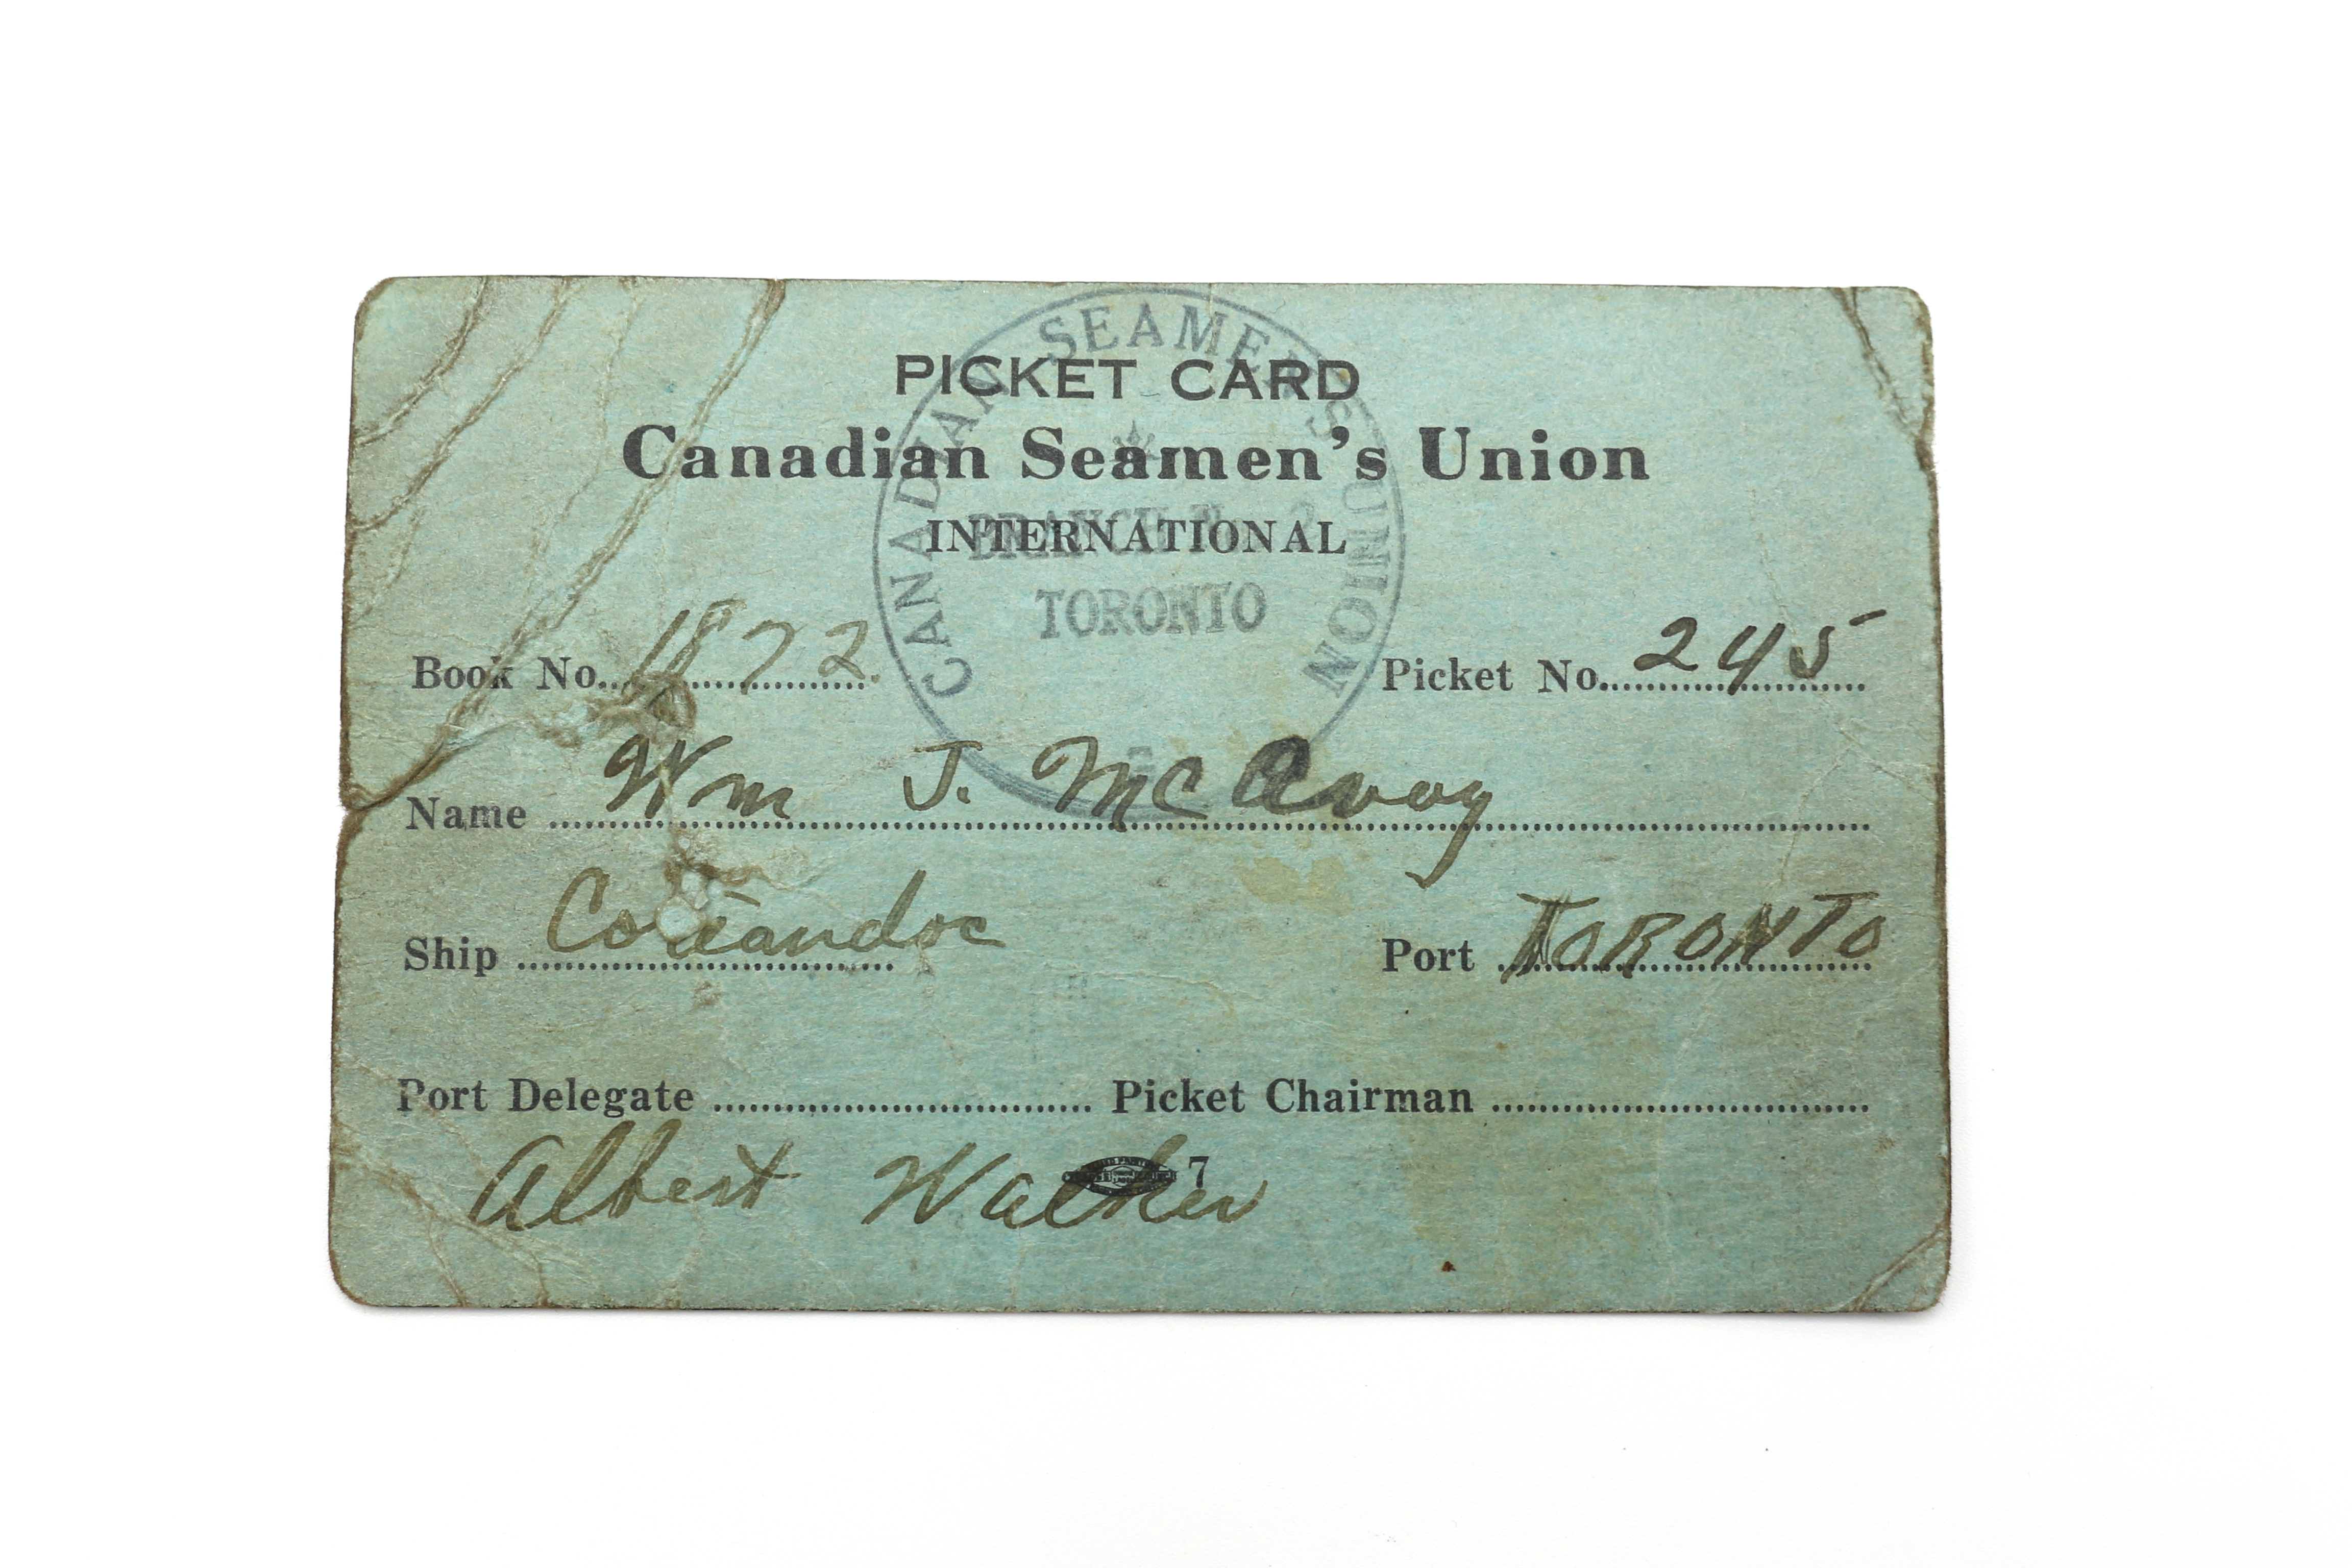 PICKET CARD
Canadian Seamen's Union
INTERNATIONAL
CANADIAN SEAMEN'S UNION
BRANCH No. 2
TORONTO
Book No. 1872.
Picket No. 245
Name Wm J. McAvoy
Ship
Port TORONTO
Port Delegate Picket Chairman
Albert Walker
7